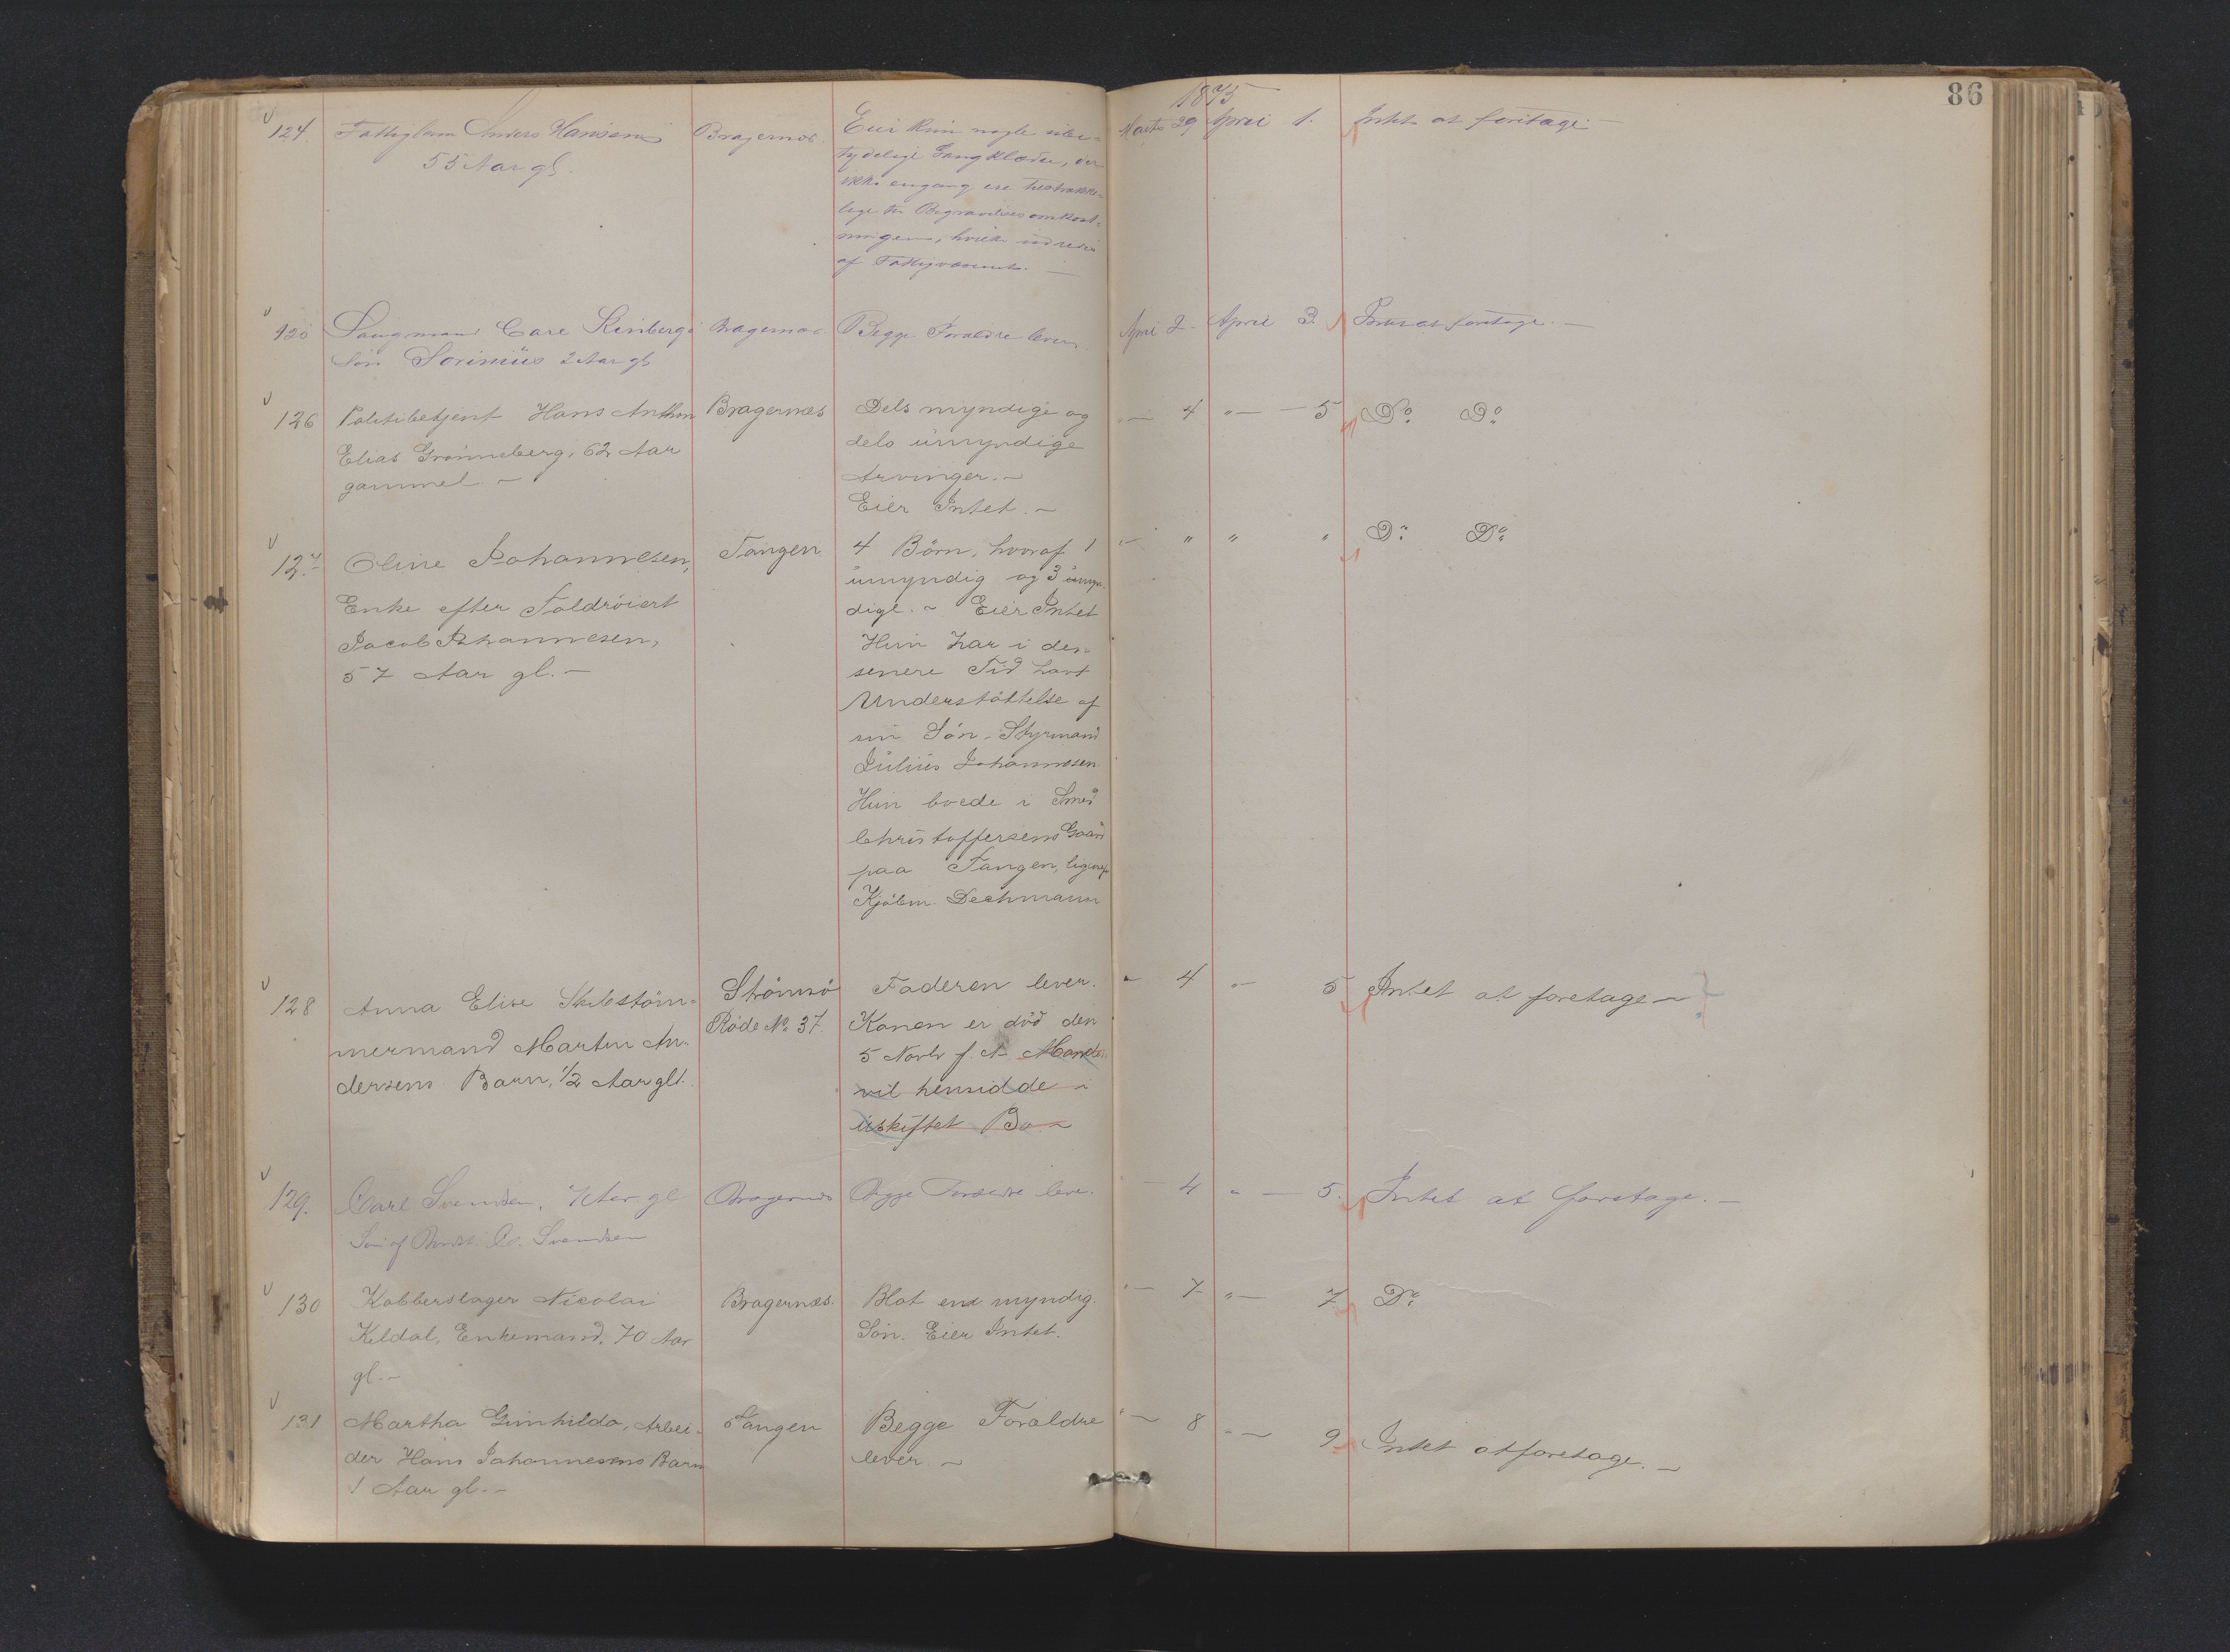 86
1875
124. Fattiglem Anders Hansen Bragernæs. Eier kun nogle ube-
55 Aar gl. tydelige Gangklæder, der
ikke engang ere tilstrække-
lige til Begravelsesomkost-
ningen, hvilke udredes
af Fattigvæsenet. —
Marts 29 April 1. Intet at foretage —
125 Søn Sevinius 2 Aar gl. Bragernæs Begge Forældre lever.
April 2. April 3. Intet at foretage. —
126 Politibetjent Hans Anthon Bragernæs Dels myndige og
Elias Grønneberg, 62 Aar dels umyndige
gammel. — Arvinger. —
Eier Intet. —
" — 4 " — — 5 Do. Do.
127 Oline Johannesen, Tangen 4 Börn, hvoraf 1
Enke efter umyndig og 3 umyn-
Jacob Johannesen, dige. — Eier Intet
57 Aar gl. — Hun har i den
senere Tid havt
Understöttelse af
sin Sön, Styrmand
Julius Johannesen.
Hun boede i Smed
Christoffersens Gaard
paa Tangen, ligeoverf.
Kjöbm. Dechmann
" " " " Do. Do.
128 Anna Elise Skibstöm- Strömsö Faderen lever.
mermand Martin An- Röde No. 37. Konen er död den
dersens Barn, 1/2 Aar glt. 5 Novbr f. A. Manden
vil hensidde i
uskiftet Bo —
" 4 " — 5 Intet at foretage —
129. Carl Svendsen, Aar gl Bragernæs Begge Forældre lever.
Søn af C. Svendsen
— 4 " — 5. Intet at foretage. —
130 Kobberslager Nicolai Bragernæs. Blot en myndig
Keldal, Enkemand, 70 Aar Sön. Eier Intet.
gl. —
" — 7 " — 7 Do.
131 Martha Gunhilda, Arbei- Tangen Begge Forældre
der Hans Johannesens Barn lever. —
1 Aar gl. —
" — 8 " — 9 Intet at foretage. —